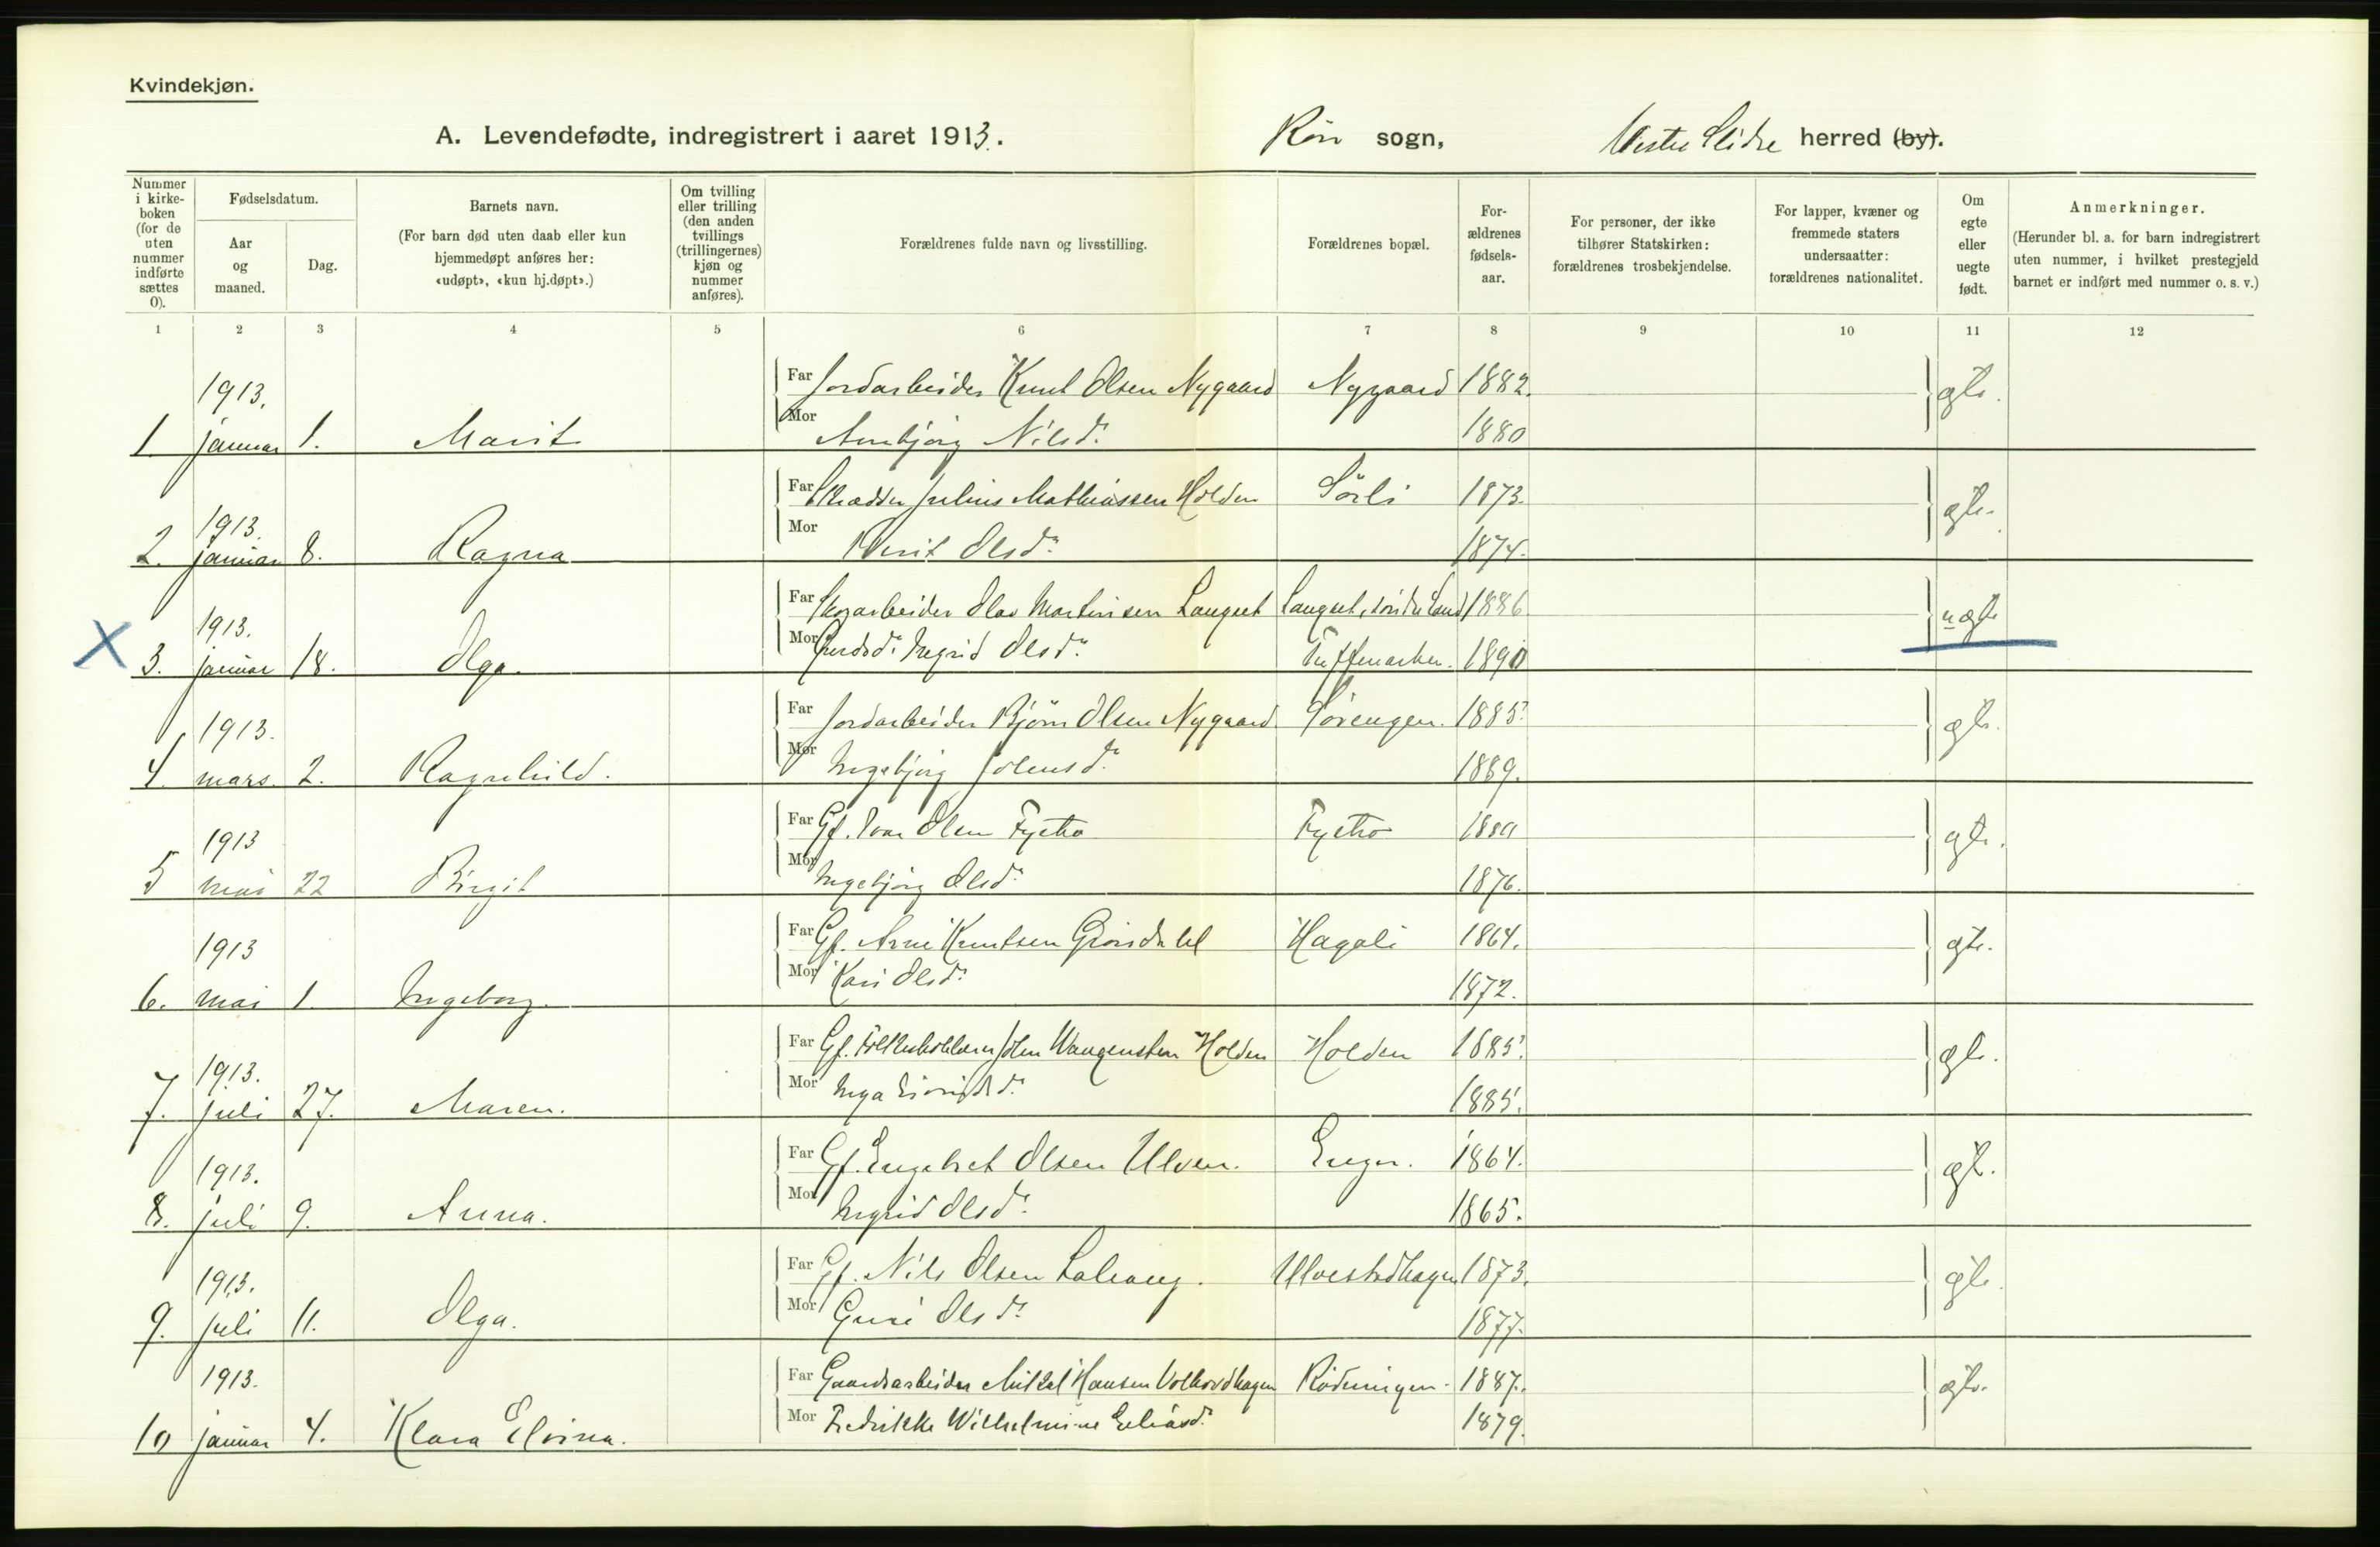 Kvindekjøn.
A. Levendefødte, indregistrert i aaret 1913. Røn sogn, Vestre Slidre herred (by).
Nummer i kirke-boken (for de uten nummer indførte sættes 0).
Fødselsdatum.
Aar og maaned.
Dag.
Barnets navn.
(For barn død uten daab eller kun hjemmedøpt anføres her: «udøpt», «kun hj.døpt».)
Om tvilling eller trilling (den anden tvillings (trillingernes) kjøn og nummer anføres).
Forældrenes fulde navn og livsstilling.
Forældrenes bopæl.
For-ældrenes fødsels-aar.
For personer, der ikke tilhører Statskirken: forældrenes trosbekjendelse.
For lapper, kvæner og fremmede staters undersaatter: forældrenes nationalitet.
Om egte eller uegte født.
Anmerkninger.
(Herunder bl. a. for barn indregistrert uten nummer, i hvilket prestegjeld barnet er indført med nummer o. s. v.)
1 2 3 4 5 6 7 8 9 10 11 12
1913. Far Jordarbeider Knut Olsen Nygaard Nygaard 1882. egte.
1. januar 1. Marit Mor Nilsd. 1880
1913. Far Skrædder Julius Mathiassen Holden Sörli 1873. egte.
2. januar 8. Ragna Mor Berit Olsd. 1874.
1913. Far Skogarbeider Olav Martinsen Langset Langset, Söndre Land 1886 uegte
X 3. januar 18. Olga. Mor Ingrid Olsd. 1890
1913. Far Jordarbeider Björn Olsen Nygaard 1885. egte.
4. mars. 2. Ragnhild. Mor Ingebjørg Johansd. 1889.
1913 Far Gf. Ivar Olsen Fystro Fystro egte.
5 mai 22 Birgit Mor Ingebjørg Olsd. 1876.
1913 Far Gf. Arne Knutsen Hagali 1864. egte.
6. mai 1. Ingeborg. Mor Kari Olsd. 1872.
1913. Far Gf. John Wangensten Holden Holden 1885. egte.
7. juli 27. Maren. Mor Inga 1885.
1913. Far Gf. Engebret Olsen Ulven. Enger. 1864. egte.
8. juli 9. Anna. Mor Ingrid Olsd. 1865.
1913. Far Gf. Nils Olsen 1873. egte.
9. juli 11. Olga. Mor Guri Olsd. 1877.
1913. Far Gaardsarbeider Mikkel Hansen Volhovdhagen 1887. egte.
10 januar 4. Klara Elvina. Mor Fredrikke Wilhelmine Eliasd. 1879.